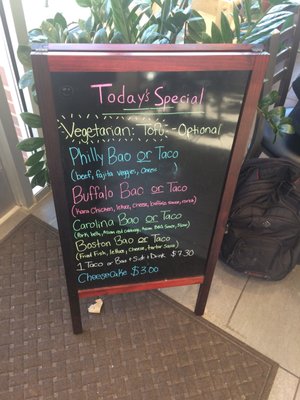 Today's Special
Vegetarian: Tofu - Optional
Philly Bao or Taco
(beef, fajita veggies, onions)
Buffalo Bao or Taco
(Karai Chicken, lettuce, cheese, buffalo sauce, ranch)
Carolina Bao or Taco
(Pork belly, Asian red cabbage, Asian BBQ Sauce, Slaw)
Boston Bao or Taco
(Fried Fish, lettuce, cheese, tartar Sauce)
1 Taco or Bao + Side + Drink $7.30
Cheesecake $3.00